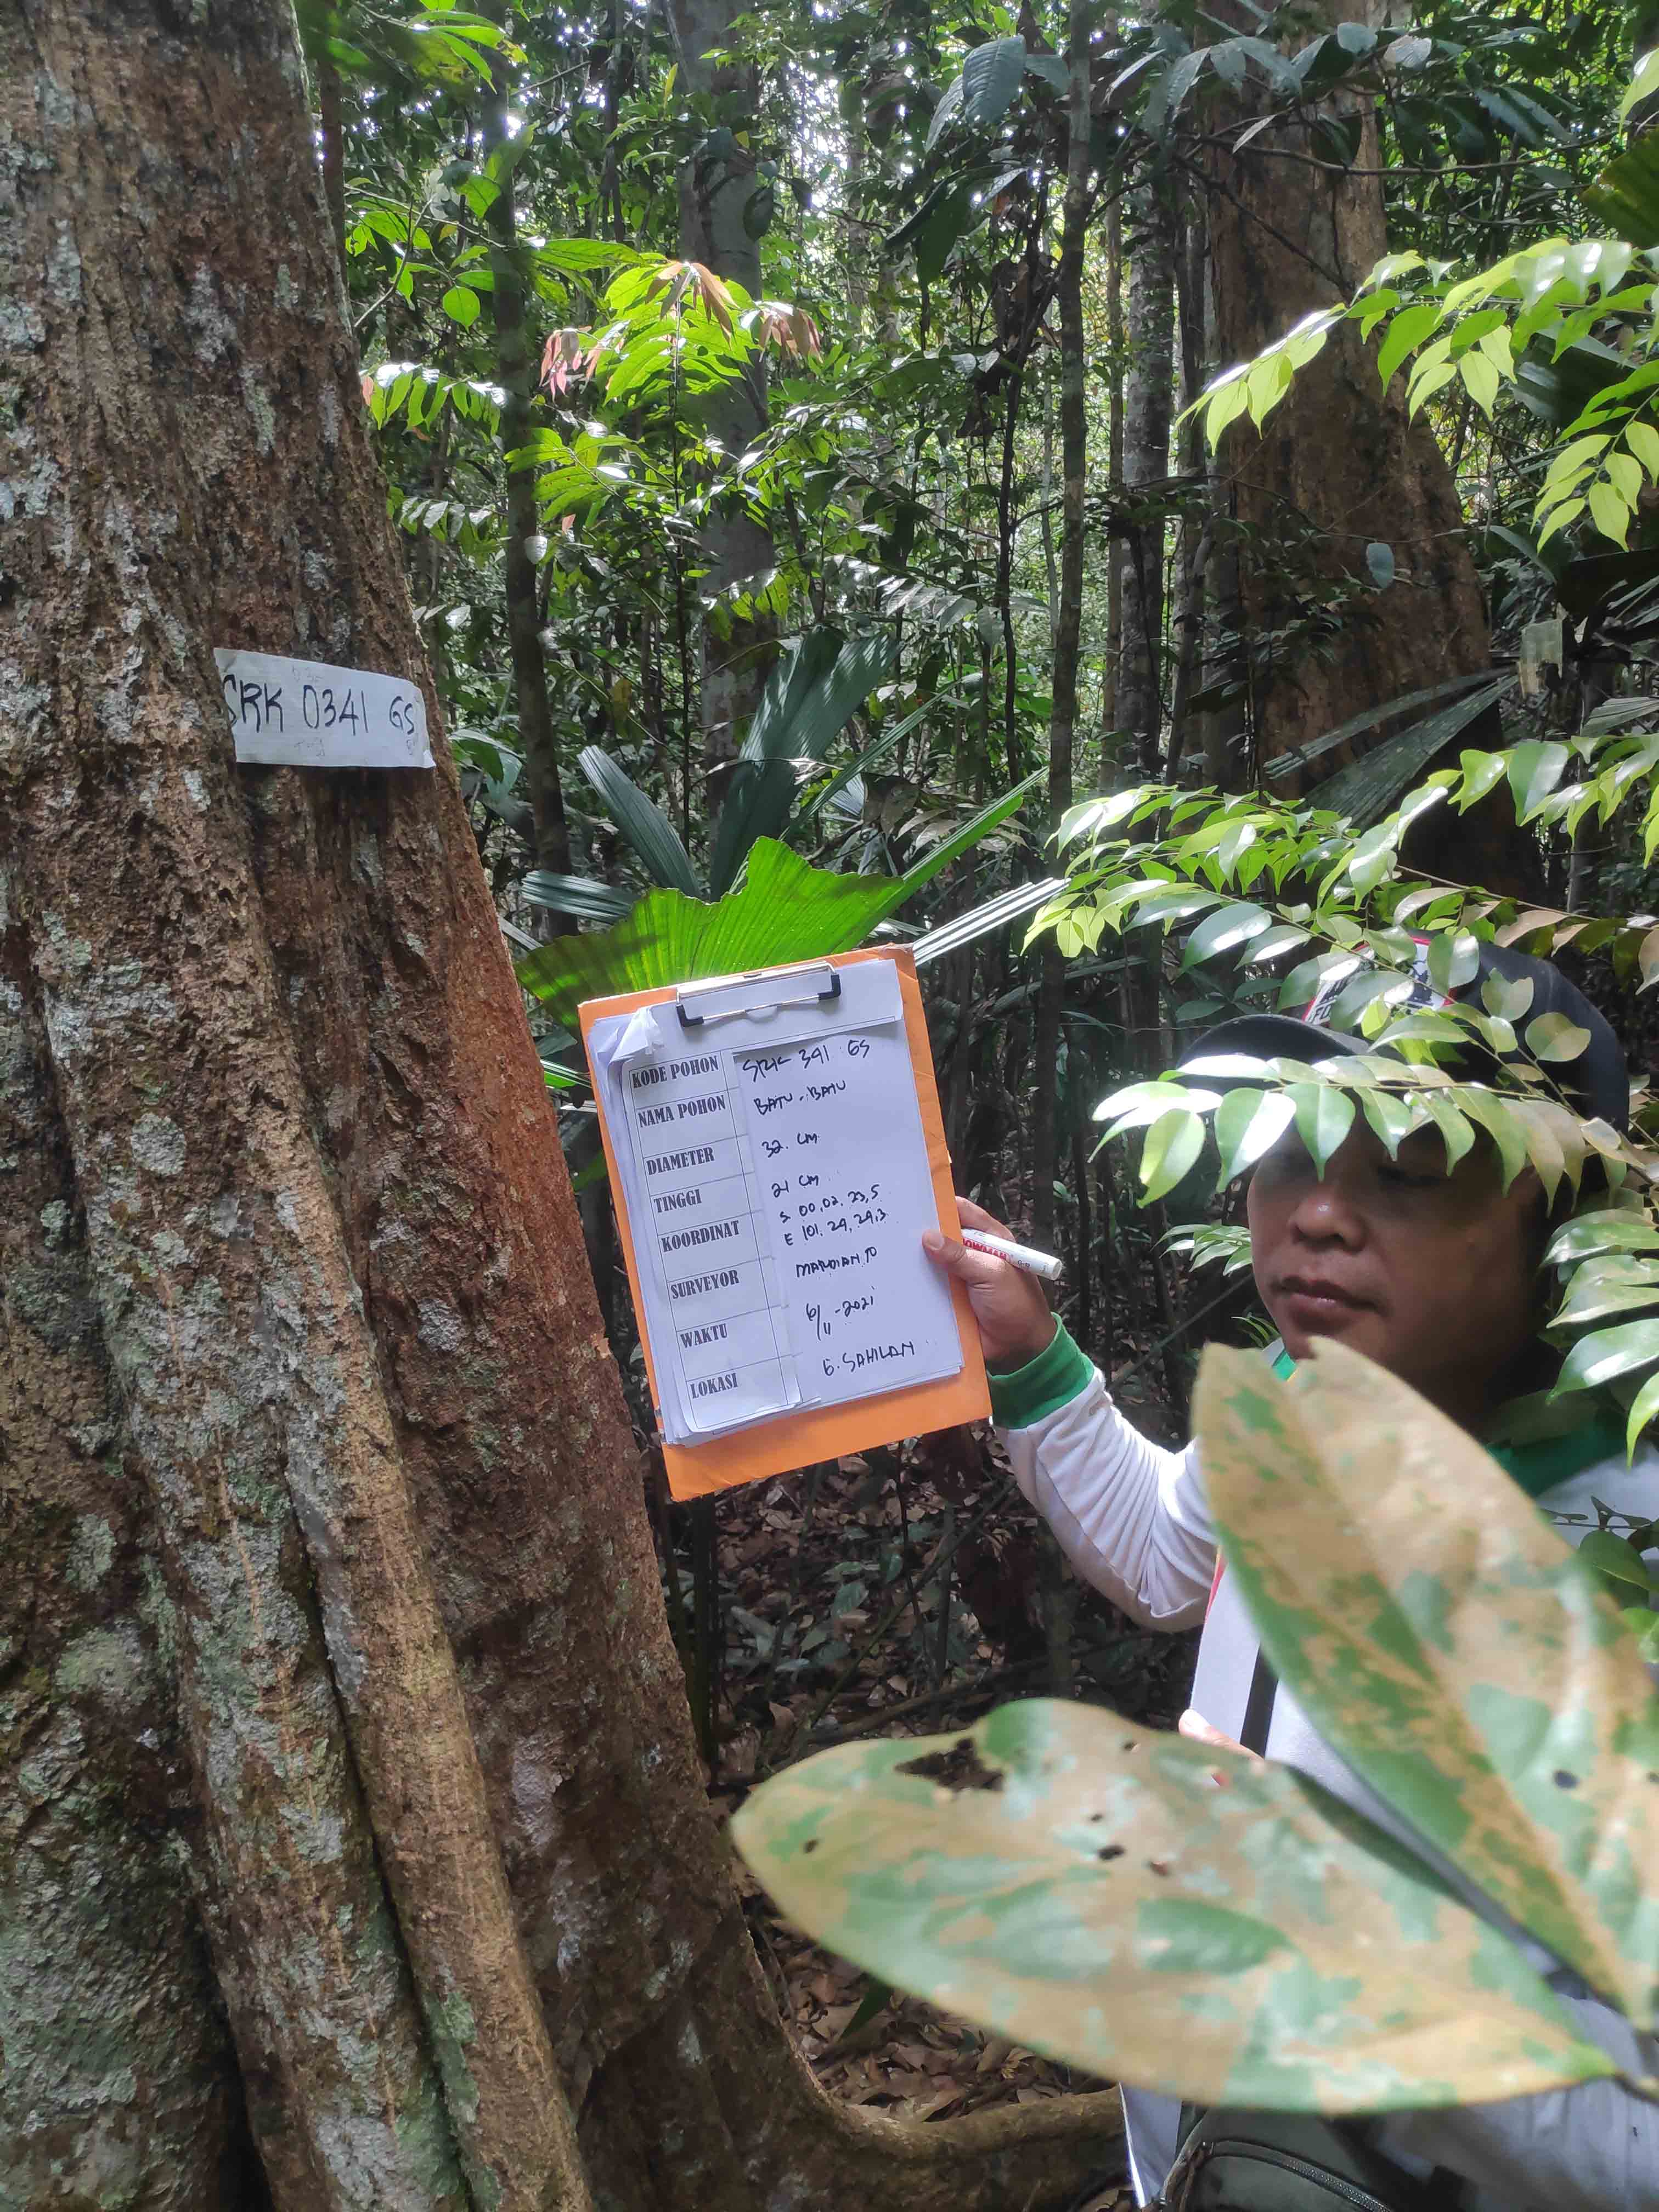 SRK 0341 GS
KODE POHON SRK 341 GS
NAMA POHON BATU-BATU
DIAMETER 32. CM
TINGGI 21 CM
KOORDINAT S 00,02,23,5
E 101,29,29,3
SURVEYOR MARDIANTO
WAKTU 6/11-2021
LOKASI G. SAHILAN